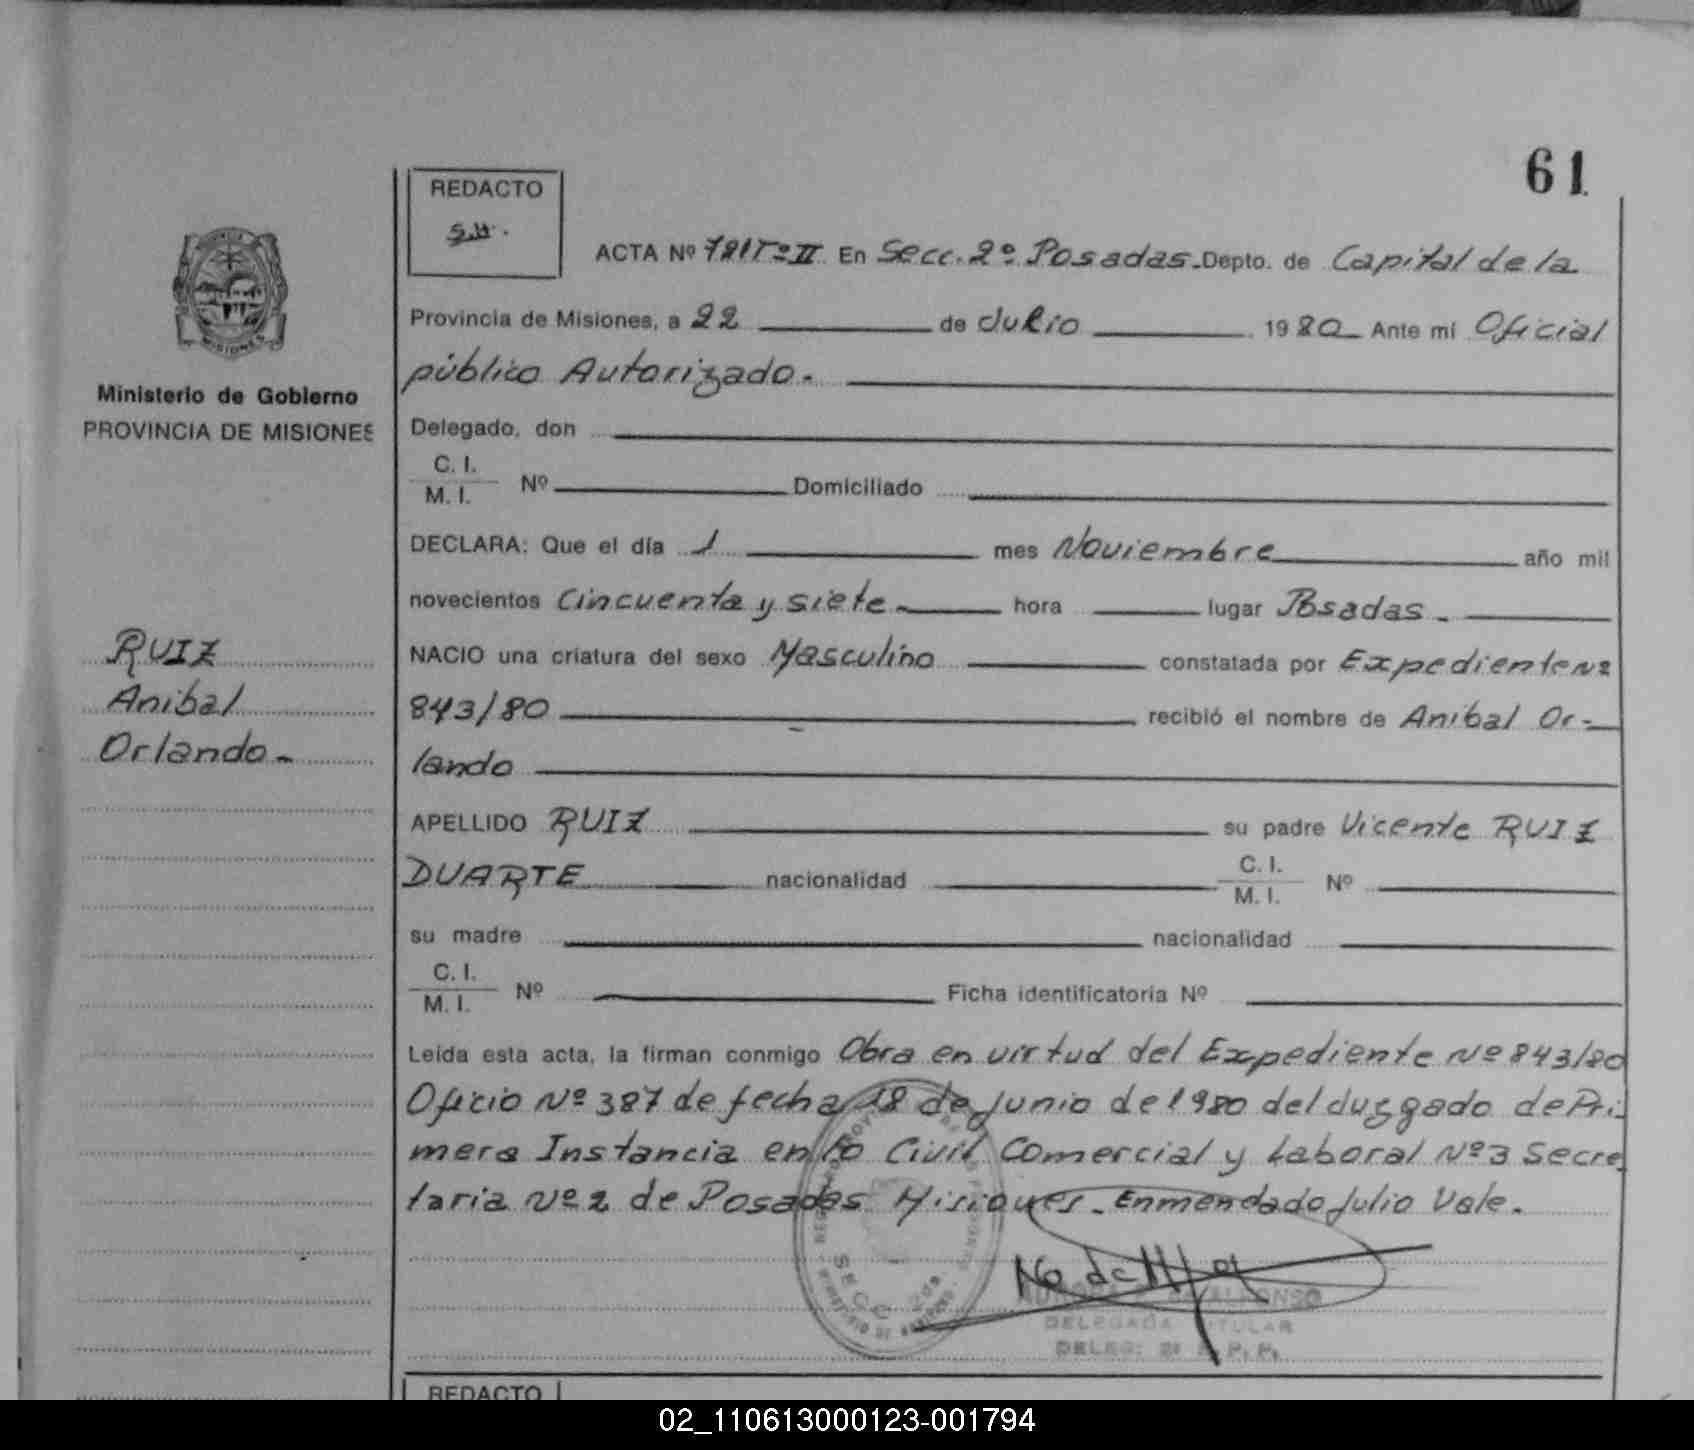 61
REDACTO
S.H.
ACTA Nº 721Tº II En Secc. 2º Posadas Depto. de Capital de la
Provincia de Misiones, a 22 de Julio 1980 Ante mi Oficial
público Autorizado.
Delegado, don
C. I.
M. I. Nº Domiciliado
DECLARA: Que el día 1 mes Noviembre año mil
novecientos Cincuenta y siete hora lugar Posadas.
NACIO una criatura del sexo Masculino constatada por Expediente Nº
843/80 recibió el nombre de Anibal Or-
lando
APELLIDO RUIZ su padre Vicente RUIZ
DUARTE nacionalidad C. I.
M. I. Nº
su madre nacionalidad
C. I.
M. I. Nº Ficha identificatoria Nº
Leída esta acta, la firman conmigo Obra en virtud del Expediente Nº 843/80
Oficio Nº 387 de fecha 18 de Junio de 1980 del Juzgado de Pri-
mera Instancia en lo Civil Comercial y Laboral Nº 3 Secre
taria Nº 2 de Posadas Misiones. Enmendado Julio Vale.
SECC 2da
DELEGADA TITULAR
REDACTO
MISIONES
Ministerio de Gobierno
PROVINCIA DE MISIONES
RUIZ
Anibal
Orlando
02_110613000123-001794